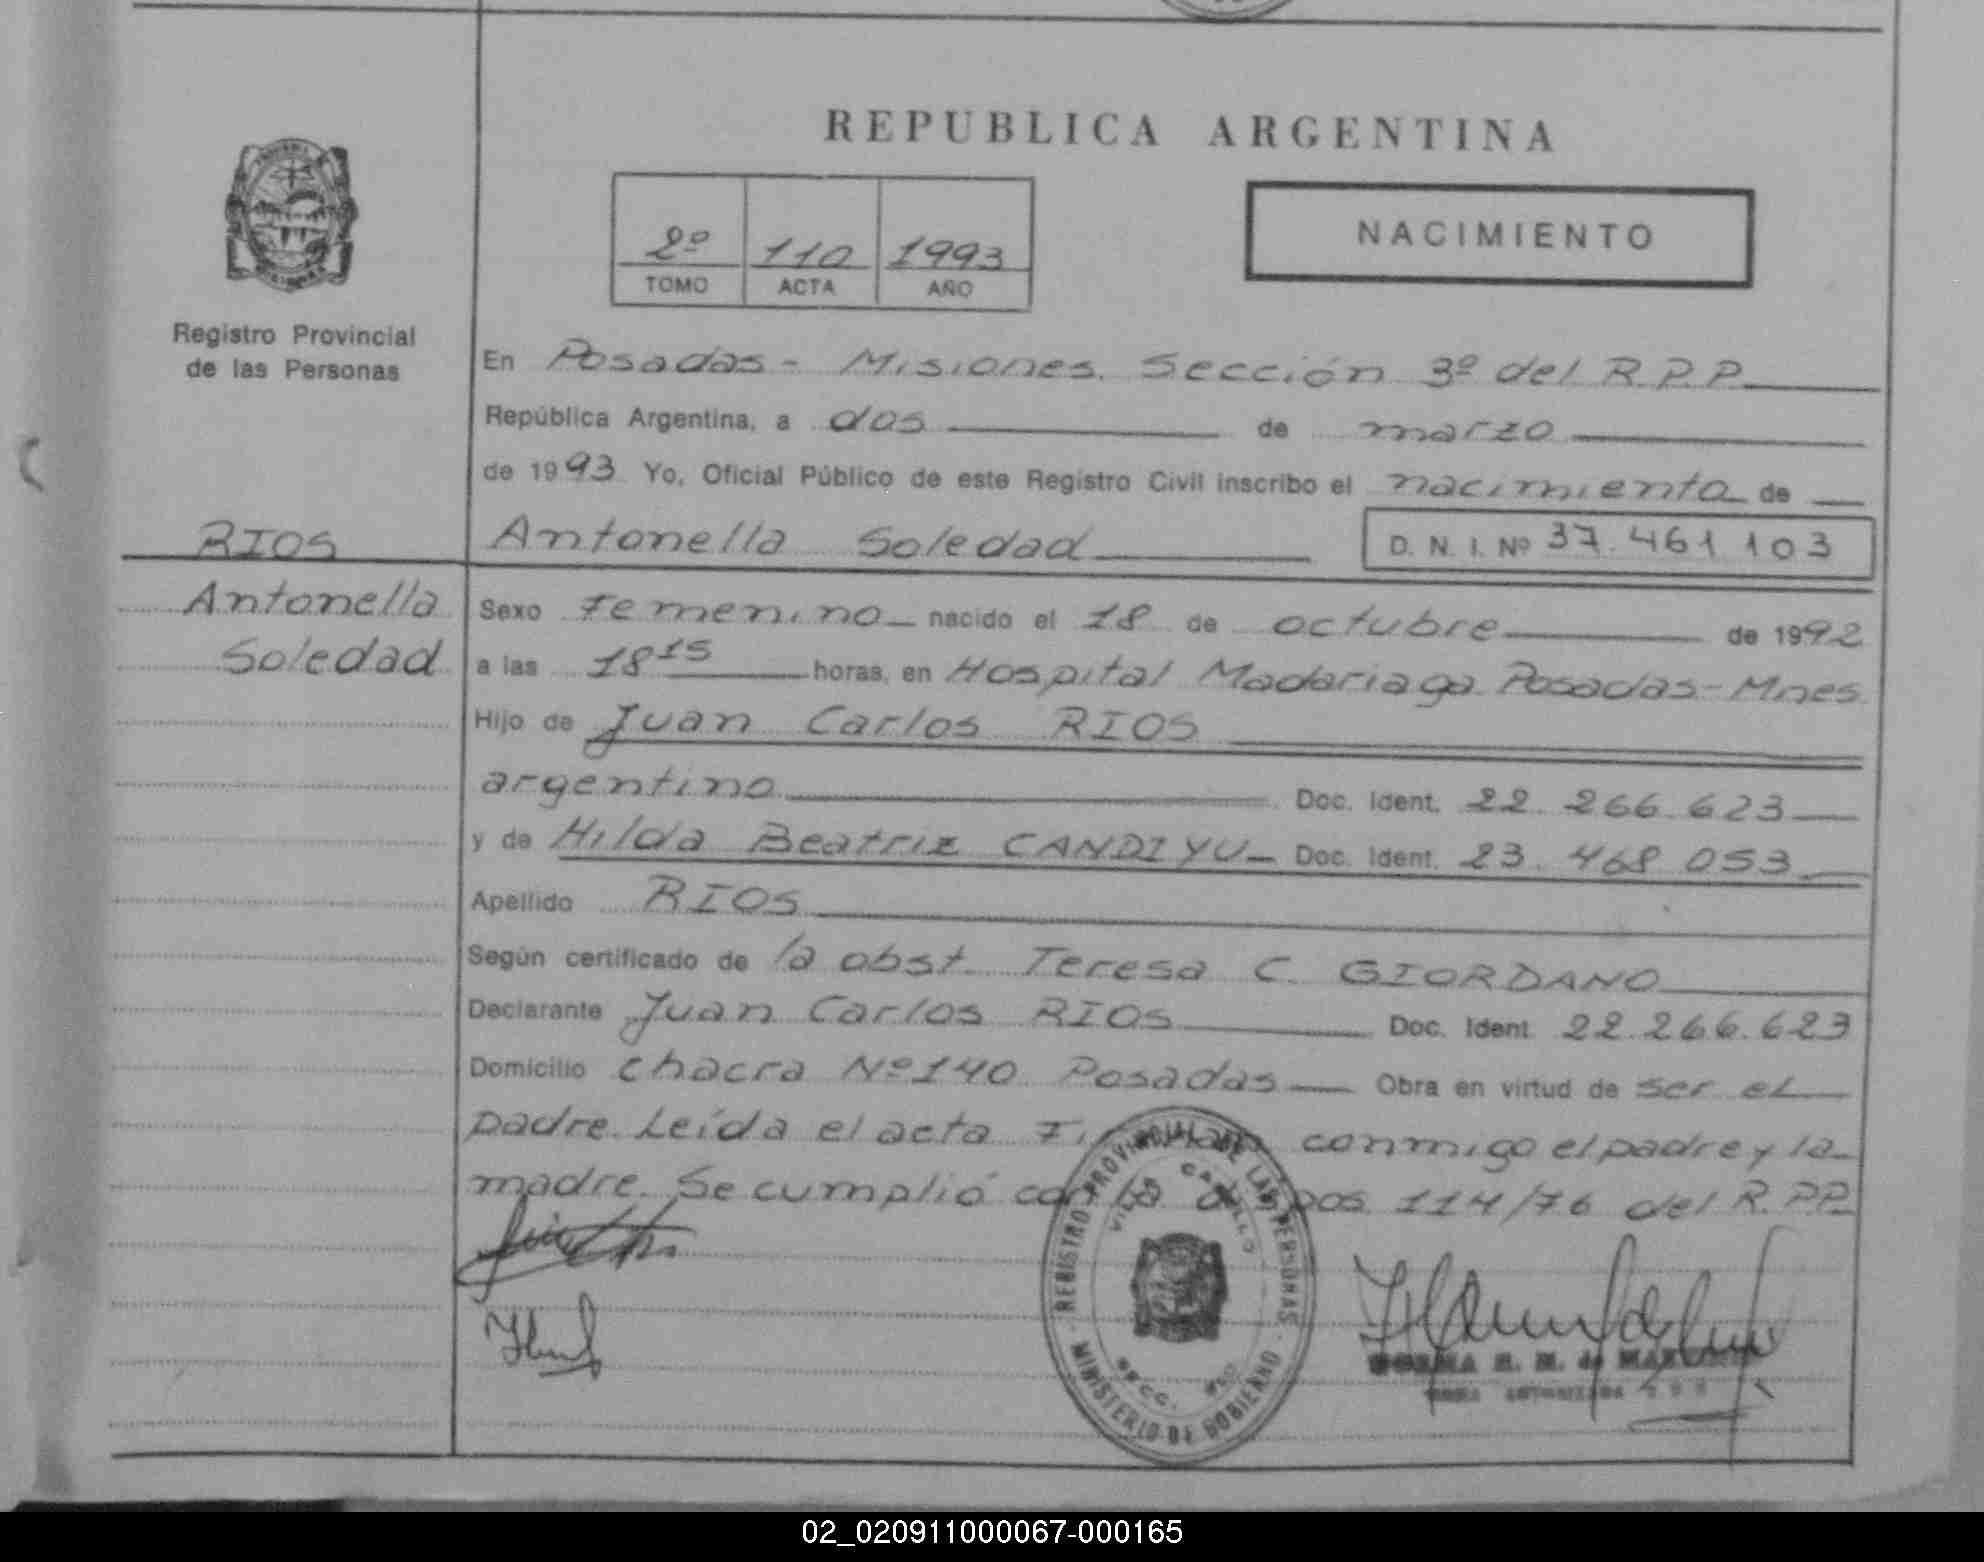 REPUBLICA ARGENTINA
NACIMIENTO
2º 110 1993
TOMO ACTA AÑO
Registro Provincial
de las Personas
En Posadas - Misiones. Sección 3º del R.P.P.
República Argentina, a dos de marzo
de 1993 Yo, Oficial Público de este Registro Civil inscribo el nacimiento de
RIOS
Antonella Soledad
D. N. I. Nº 37.461 103
Antonella
Soledad
Sexo Femenino nacido el 18 de octubre de 1992
a las 18 15 horas, en Hospital Madariaga Posadas - Mnes
Hijo de Juan Carlos RIOS
argentino Doc. Ident. 22.266.623
y de Hilda Beatriz CANDIYU Doc. Ident. 23.468 053
Apellido RIOS
Según certificado de la obst. Teresa C. GIORDANO
Declarante Juan Carlos RIOS Doc. Ident. 22.266.623
Domicilio Chacra Nº 140 Posadas Obra en virtud de ser el
padre. Leída el acta conmigo el padre y la
madre. Se cumplió con la 114/76 del R.P.P.
REGISTRO PROVINCIAL DE LAS PERSONAS
MINISTERIO DE GOBIERNO
VILLA CABELLO
SECC.
NORMA H. M. de
02_020911000067-000165